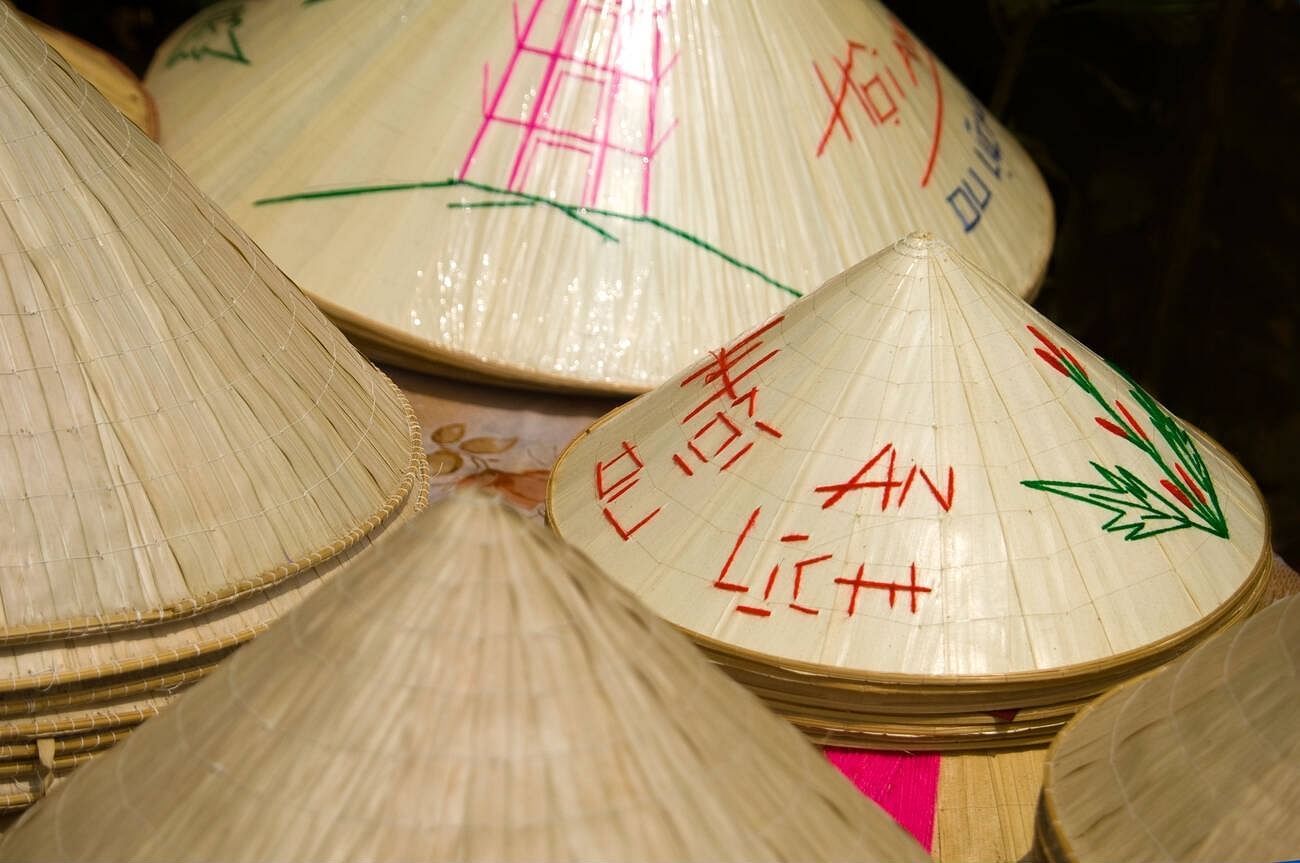 HỘI
DU
HỘI AN
DU LỊCH